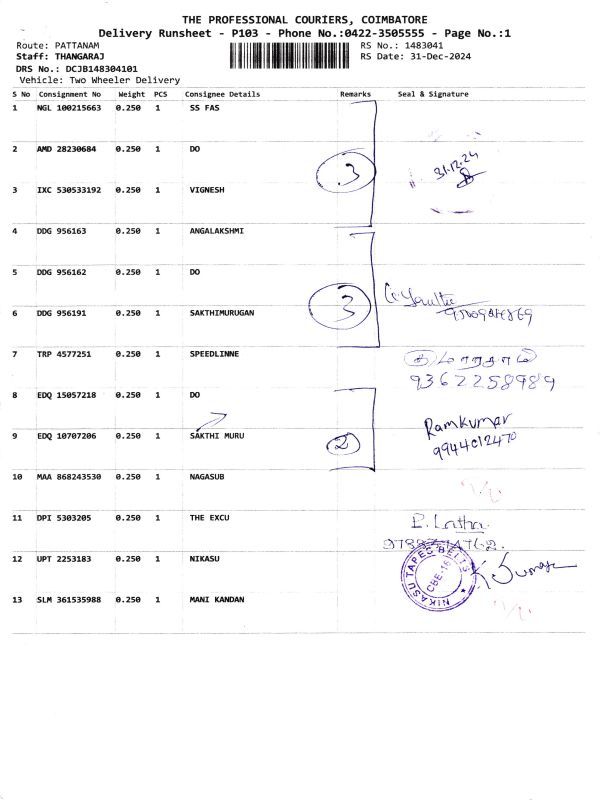 THE PROFESSIONAL COURIERS, COIMBATORE
Delivery Runsheet - P103 - Phone No.:0422-3505555 - Page No.:1
Route: PATTANAM RS No.: 1483041
Staff: THANGARAJ RS Date: 31-Dec-2024
DRS No.: DCJB148304101
Vehicle: Two Wheeler Delivery
S No Consignment No Weight PCS Consignee Details Remarks Seal & Signature
1 NGL 100215663 0.250 1 SS FAS
2 AMD 28230684 0.250 1 DO
3 31.12.24
3 IXC 530533192 0.250 1 VIGNESH
4 DDG 956163 0.250 1 ANGALAKSHMI
5 DDG 956162 0.250 1 DO
3
6 DDG 956191 0.250 1 SAKTHIMURUGAN
7 TRP 4577251 0.250 1 SPEEDLINNE
9362258989
8 EDQ 15057218 0.250 1 DO
Ramkumar
9 EDQ 10707206 0.250 1 SAKTHI MURU 2 9944012470
10 MAA 868243530 0.250 1 NAGASUB
11 DPI 5303205 0.250 1 THE EXCU E. Latha
12 UPT 2253183 0.250 1 NIKASU
NIKASU TAPEC BELTS
CBE-16
13 SLM 361535988 0.250 1 MANI KANDAN